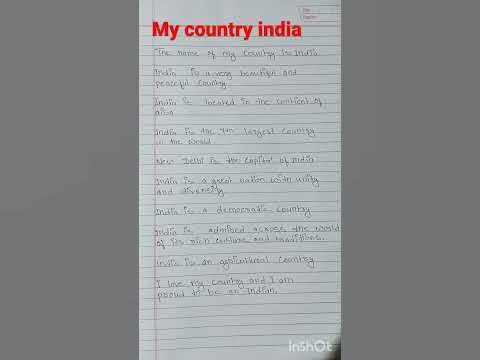 My country india
The name of my country is India
India is a very beautiful and
peaceful country
India is located in the contient of
asia
India is the 7th largest country
in the world.
New Delhi is the capital of India
India is a great nation with unity
and diversity
India is a democratic country
India is admired across the world
of its rich culture and traditions.
India is an agricultural country
I love my country and I am
proud to be an Indian.
InShOt